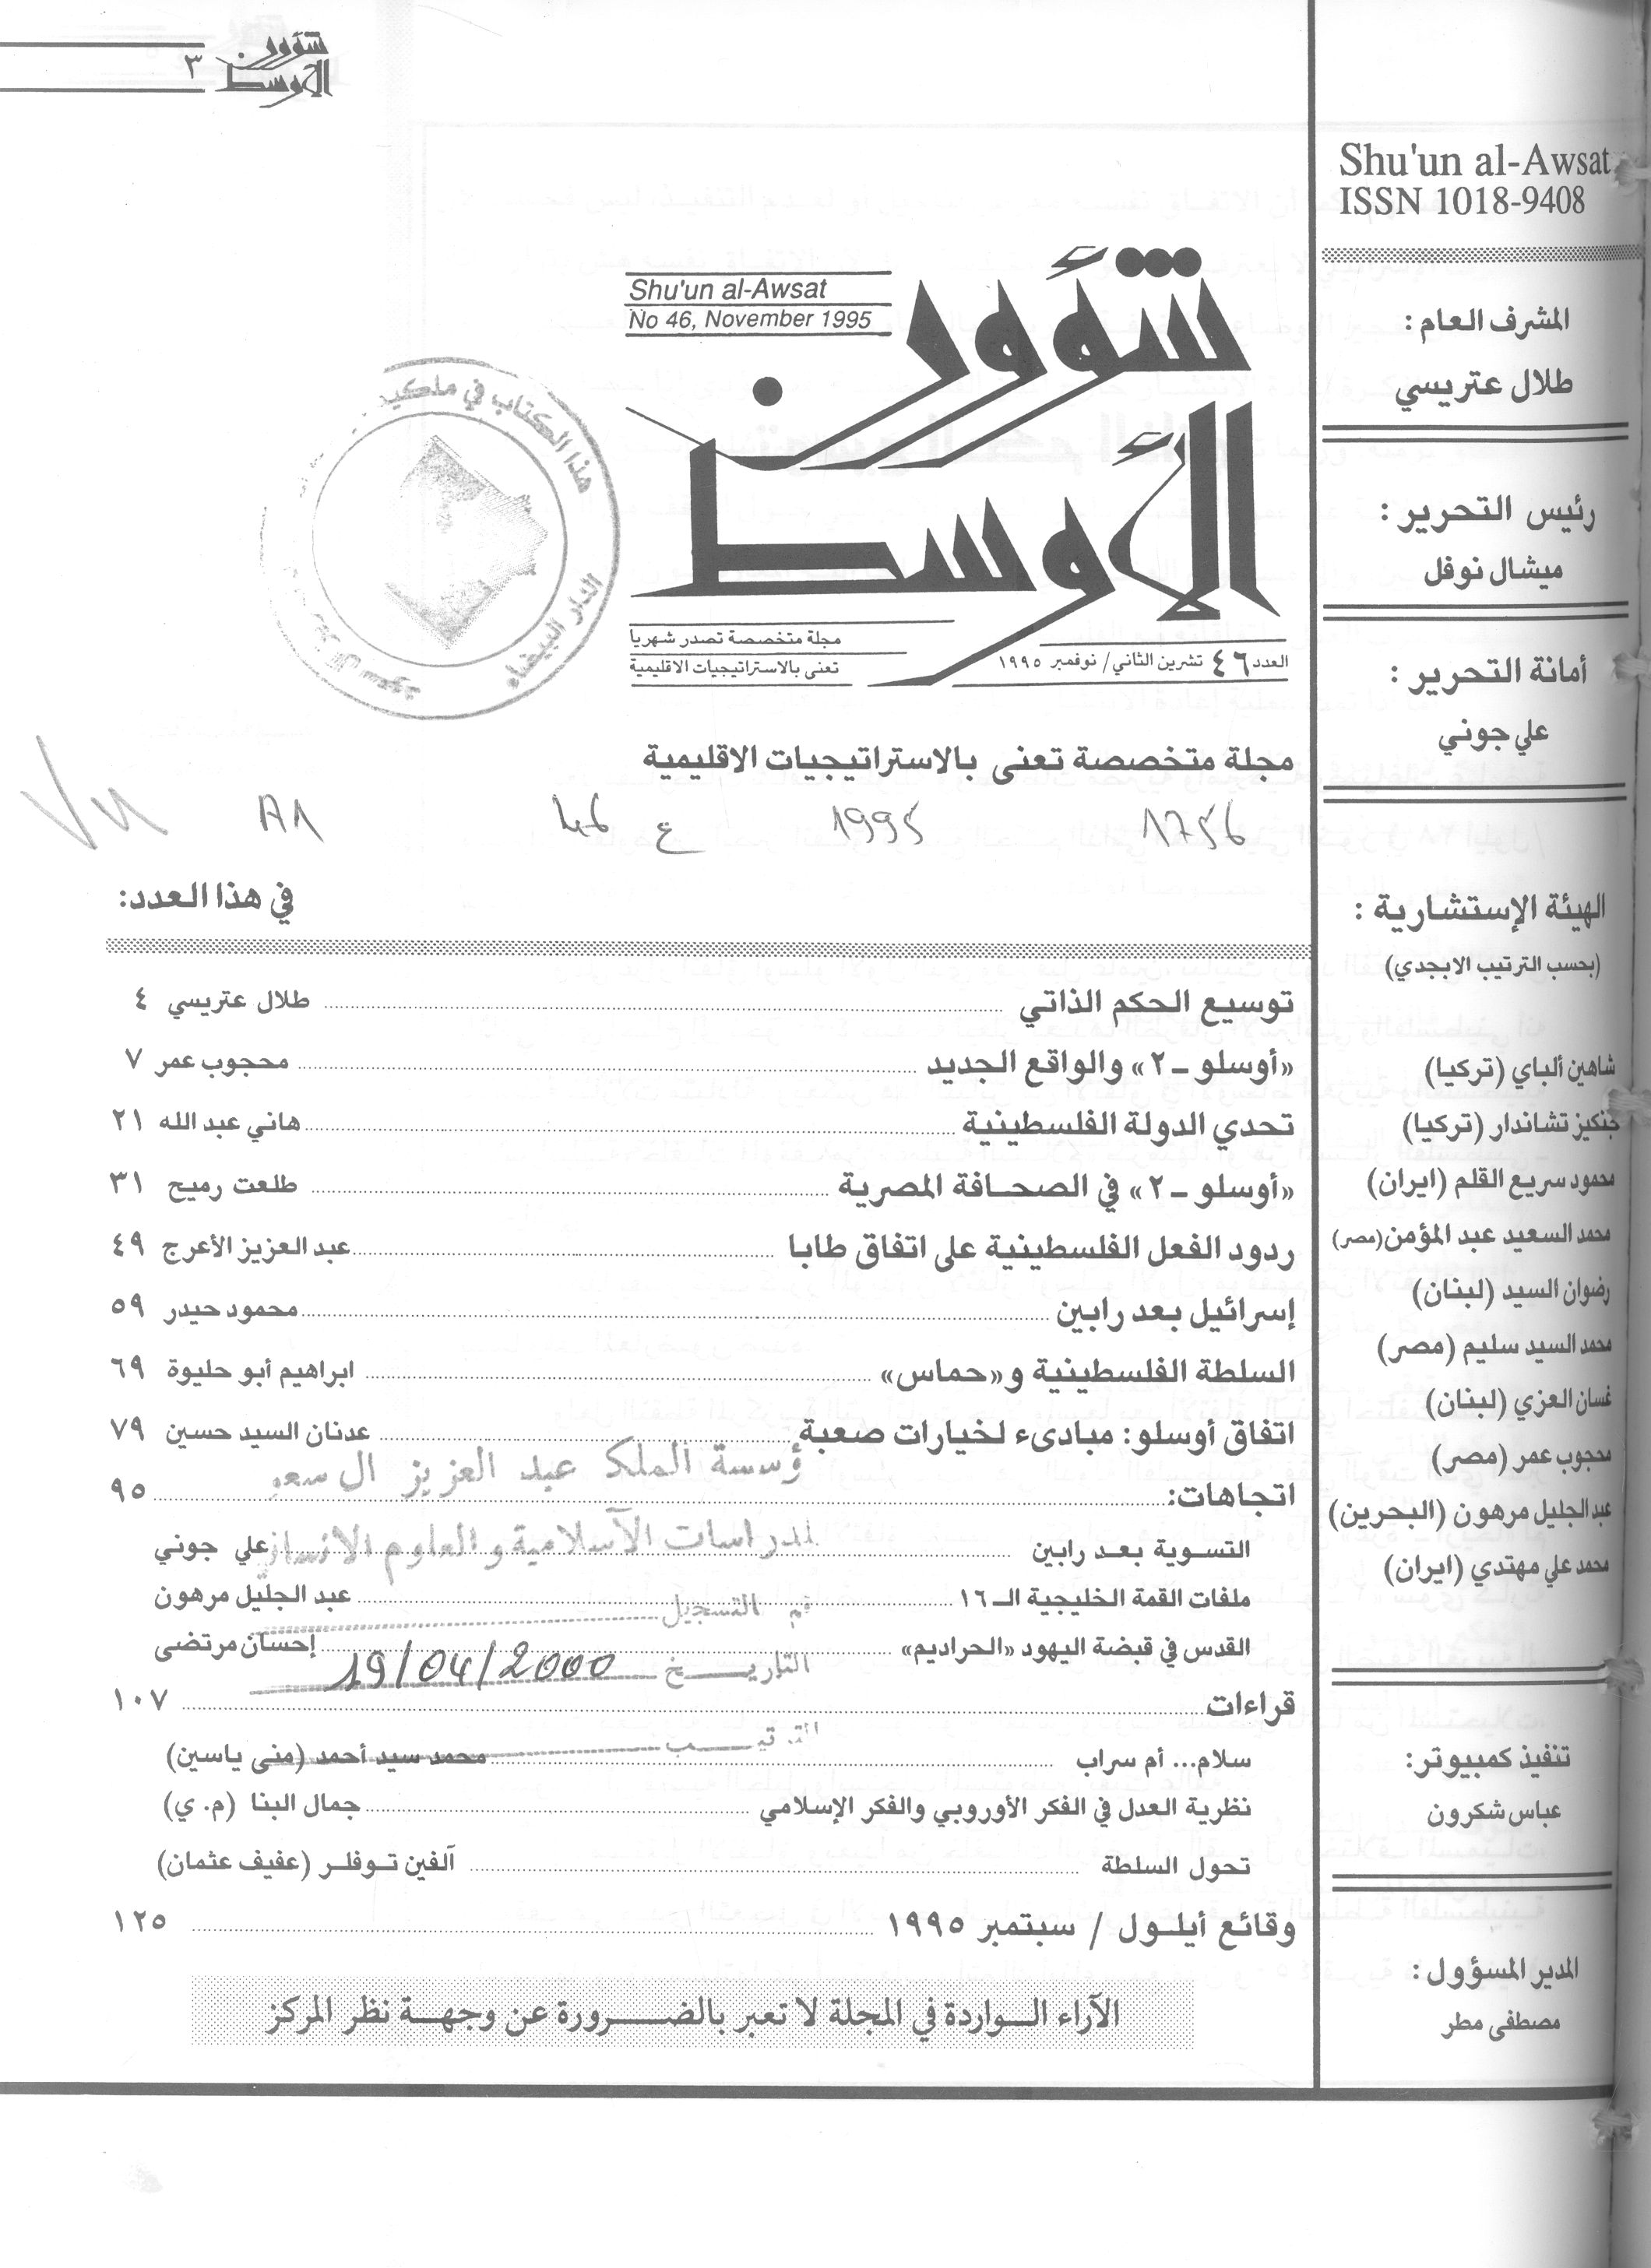 شؤون
الأوسط
٣
Shu'un al-Awsat
ISSN 1018-9408
المشرف العام :
طلال عتريسي
رئيس التحرير :
ميشال نوفل
أمانة التحرير :
علي جوني
الهيئة الإستشارية :
(بحسب الترتيب الابجدي)
شاهين ألباي (تركيا)
جنكيز تشاندار (تركيا)
محمود سريع القلم (ايران)
محمد السعيد عبد المؤمن (مصر)
رضوان السيد (لبنان)
محمد السيد سليم (مصر)
غسان العزي (لبنان)
محجوب عمر (مصر)
عبد الجليل مرهون (البحرين)
محمد علي مهتدي (ايران)
تنفيذ كمبيوتر:
عباس شكرون
المدير المسؤول :
مصطفى مطر
Shu'un al-Awsat
No 46, November 1995
شؤون
الأوسط
مجلة متخصصة تصدر شهريا
تعنى بالاستراتيجيات الاقليمية
العدد ٤٦ تشرين الثاني/ نوفمبر ١٩٩٥
هذا الكتاب في ملكية
الدار البيضاء
مجلة متخصصة تعنى بالاستراتيجيات الاقليمية
1756 1995 ع 46 A1
في هذا العدد:
توسيع الحكم الذاتي طلال عتريسي ٤
«أوسلو ـ ٢» والواقع الجديد محجوب عمر ٧
تحدي الدولة الفلسطينية هاني عبد الله ٢١
«أوسلو ـ ٢» في الصحافة المصرية طلعت رميح ٣١
ردود الفعل الفلسطينية على اتفاق طابا عبد العزيز الأعرج ٤٩
إسرائيل بعد رابين محمود حيدر ٥٩
السلطة الفلسطينية و«حماس» ابراهيم أبو حليوة ٦٩
اتفاق أوسلو: مبادىء لخيارات صعبة عدنان السيد حسين ٧٩
ؤسسة الملك عبد العزيز ال سعو
اتجاهات: ٩٥
للدراسات الاسلامية والعلوم الانساني
التسوية بعد رابين علي جوني
ملفات القمة الخليجية الـ ١٦ عبد الجليل مرهون
قم التسجيل
القدس في قبضة اليهود «الحراديم» إحسان مرتضى
التاريخ 19/04/2000
قراءات ١٠٧
سلام... أم سراب محمد سيد أحمد (منى ياسين)
نظرية العدل في الفكر الأوروبي والفكر الإسلامي جمال البنا (م. ي)
تحول السلطة آلفين توفلر (عفيف عثمان)
وقائع أيلول / سبتمبر ١٩٩٥ ١٢٥
الآراء الواردة في المجلة لا تعبر بالضرورة عن وجهة نظر المركز